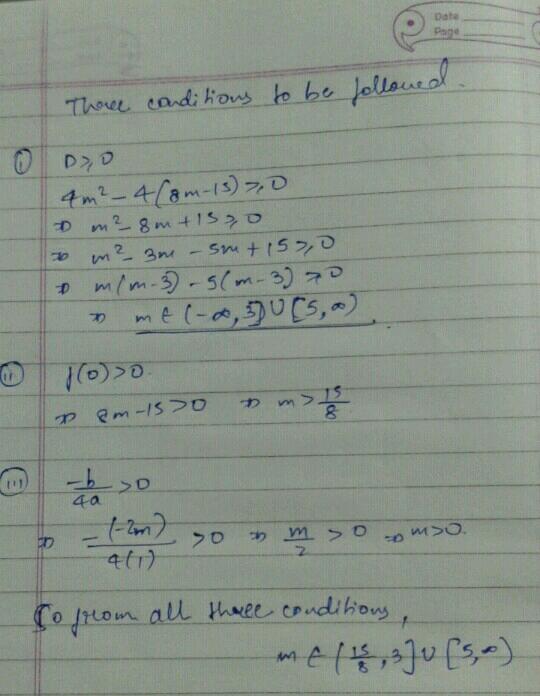 Date
Page
Three conditions to be followed.
(i) D ≥ 0
4m² - 4(8m-15) ≥ 0
⇒ m² - 8m + 15 ≥ 0
⇒ m² - 3m - 5m + 15 ≥ 0
⇒ m(m-3) - 5(m-3) ≥ 0
⇒ m ∈ (-∞, 3] ∪ [5, ∞)
(ii) f(0) > 0.
⇒ 8m - 15 > 0 ⇒ m > 15/8
(iii) -b/4a > 0
⇒ = -(-2m)/4(1) > 0 ⇒ m/2 > 0 ⇒ m > 0.
So from all three conditions,
m ∈ (15/8, 3] ∪ [5, ∞)